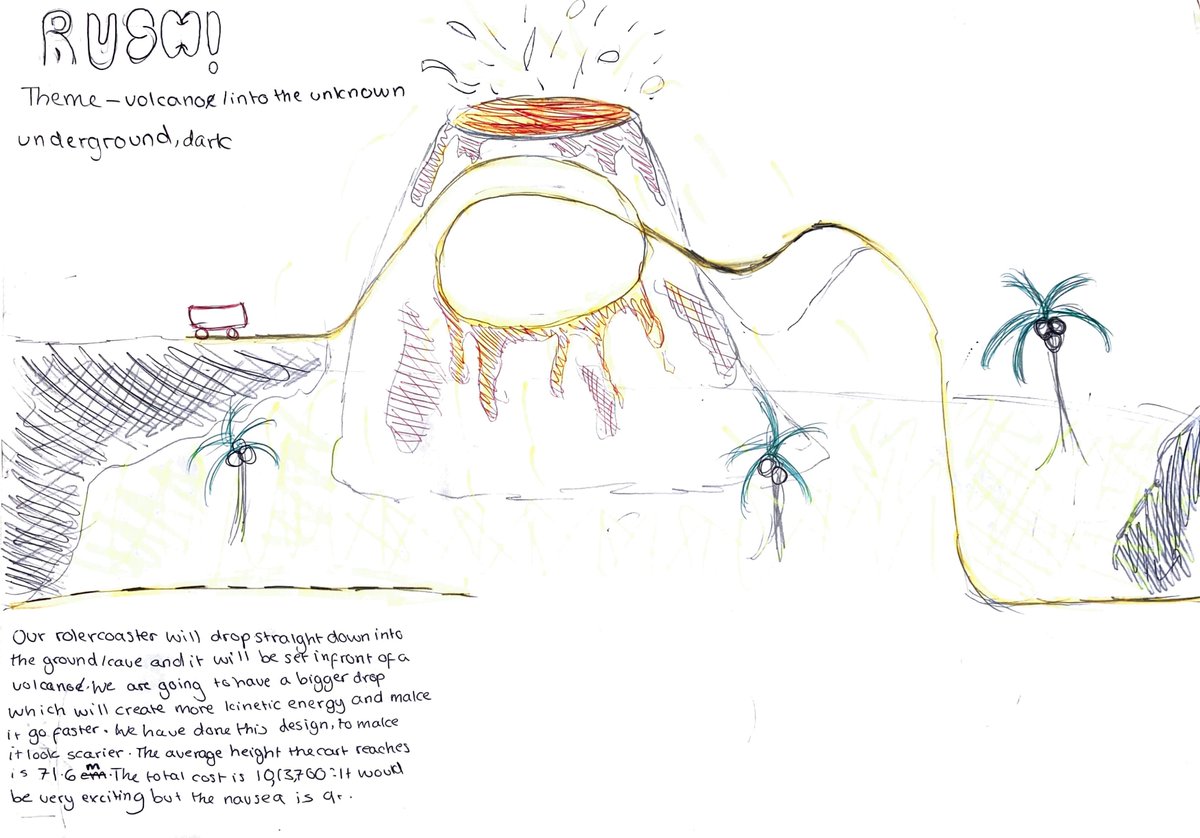 RUSH!
Theme - volcanoe/into the unknown
underground, dark
Our rolercoaster will drop straight down into
the ground/cave and it will be set infront of a
volcanoe. We are going to have a bigger drop
which will create more kinetic energy and make
it go faster. We have done this design, to make
it look scarier. The average height the cart reaches
is 71.6 m. The total cost is It would
be very exciting but the nausea is